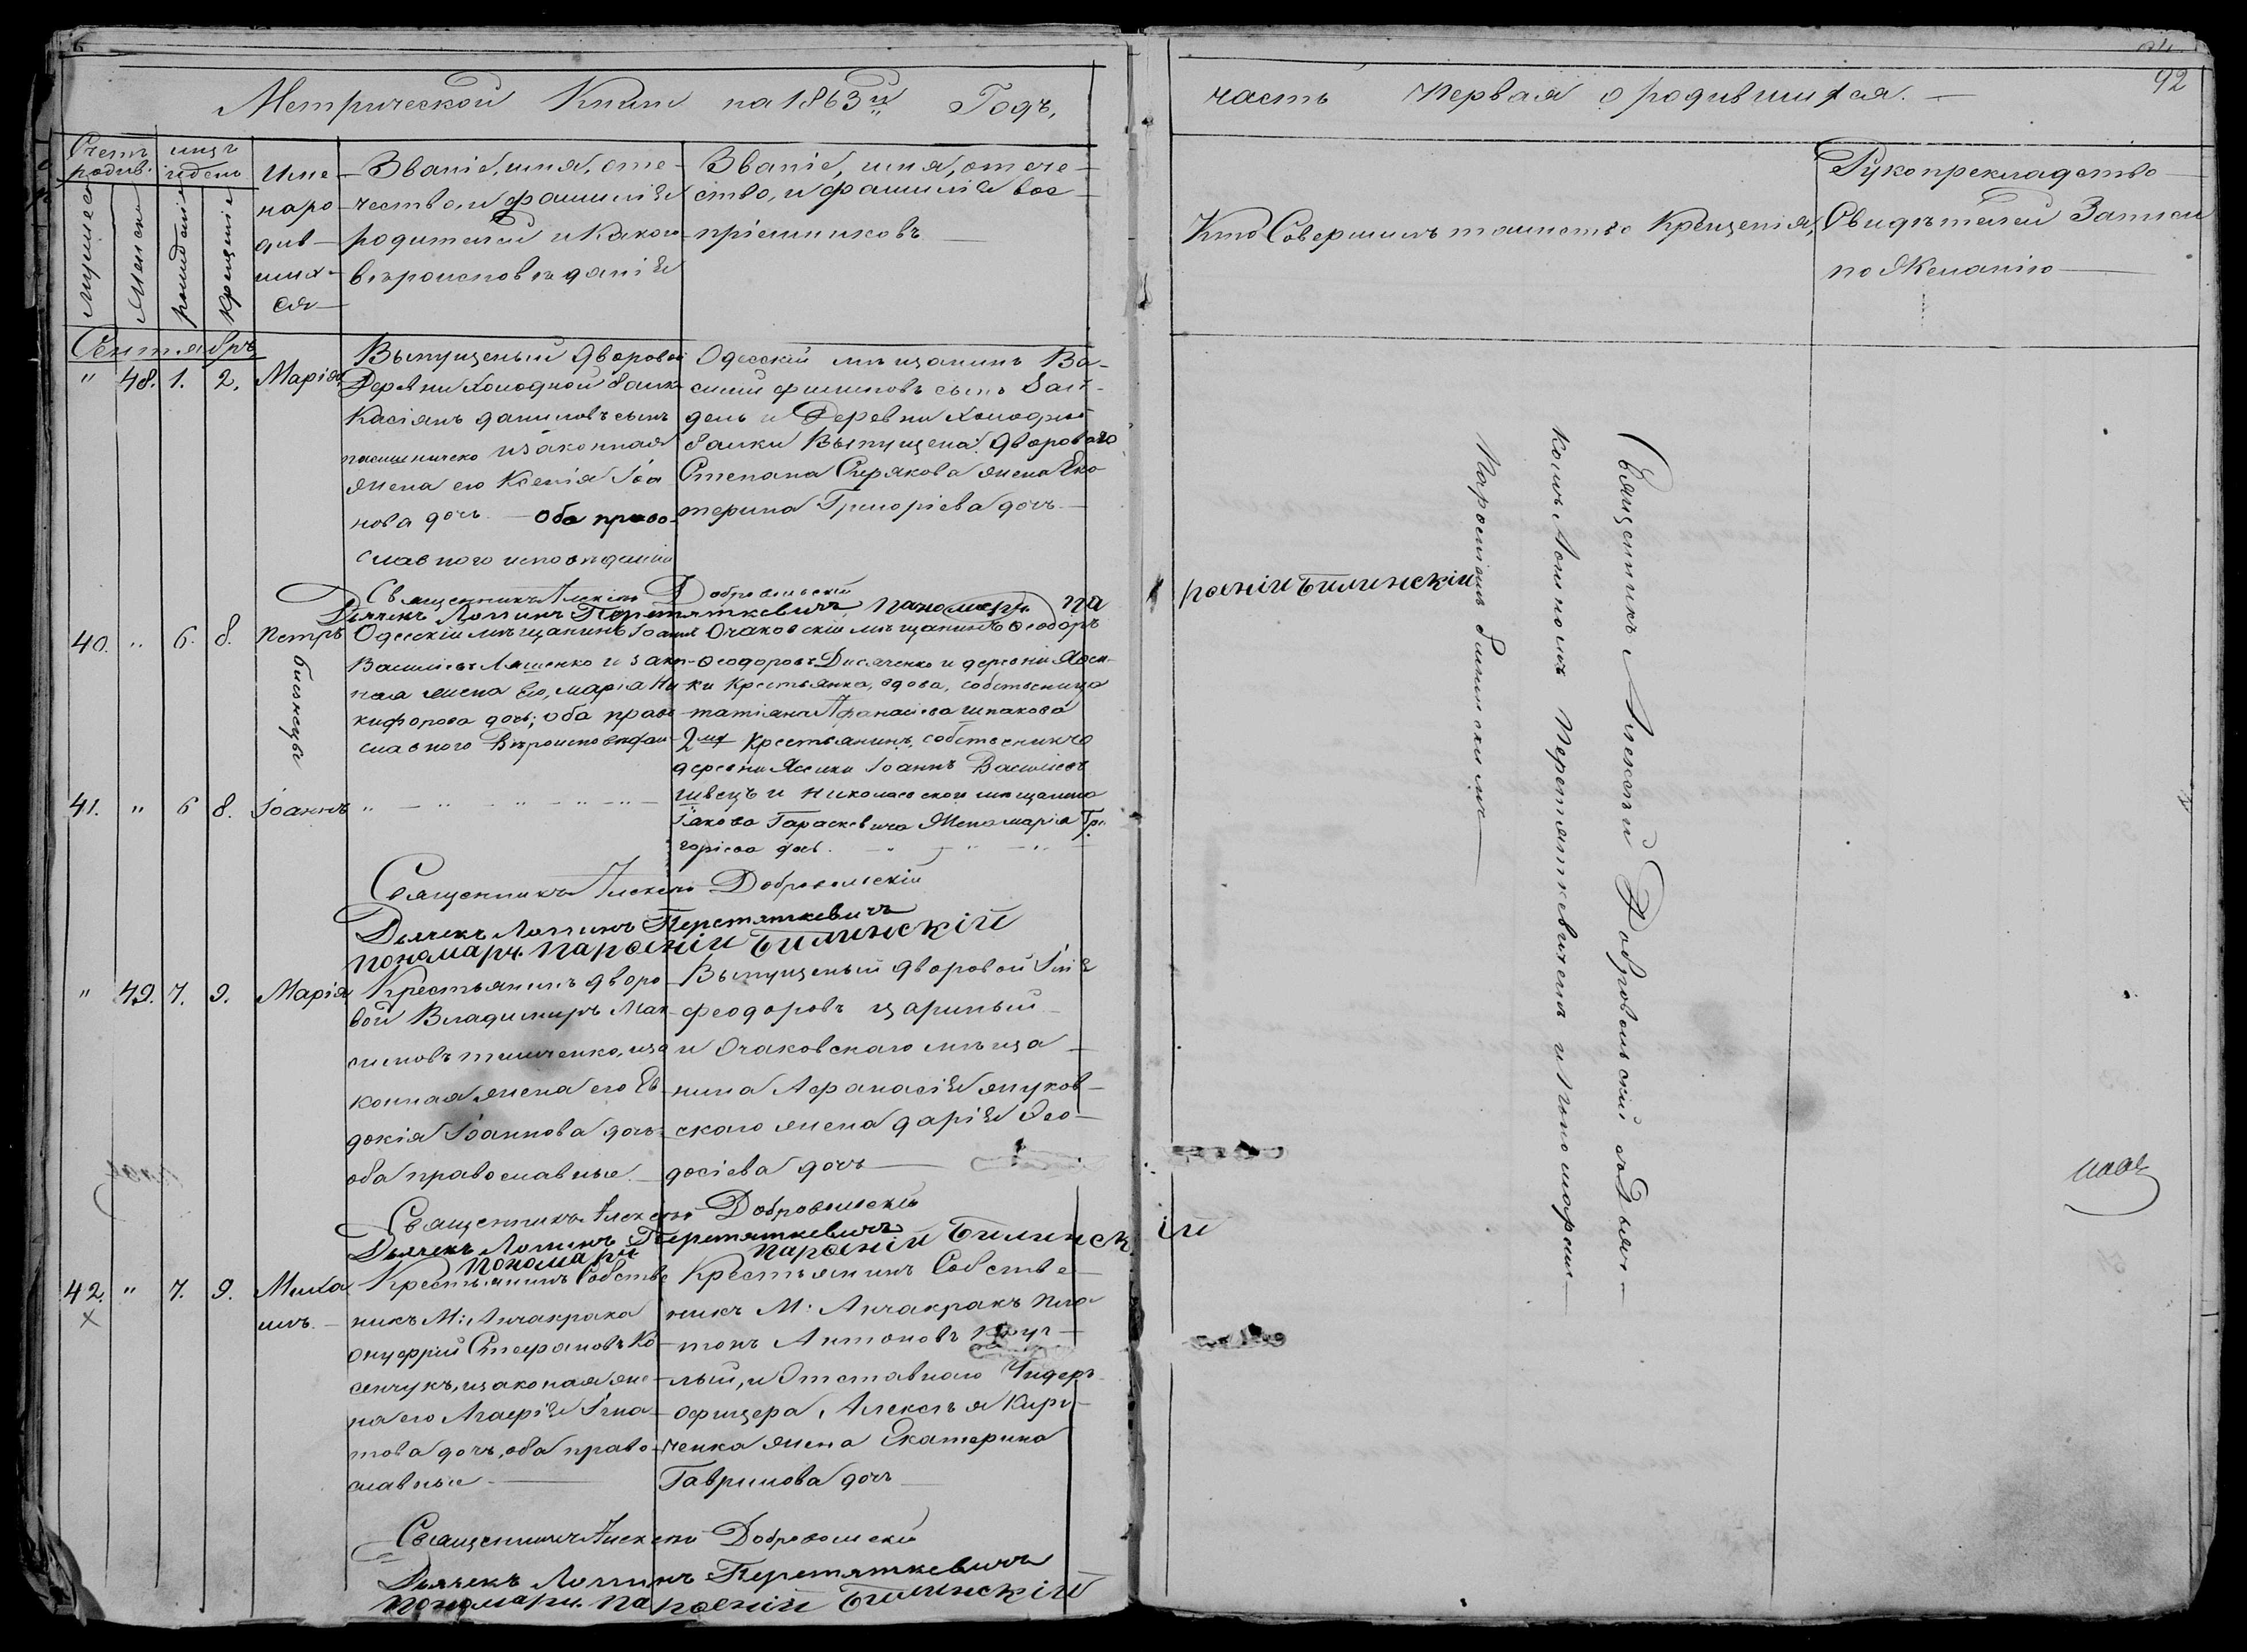 Метрической Книги на 1863й Годъ,
часть первая о родившихся.
92
Счетъ родив.
мужеска
женска
рожденія
крещенія
Име-
наро
див-
ших-
ся
Званіе, имя, оте-
чество, и фамилія
родителей и какого
вѣроисповѣданія
Званіе, имя, отече-
ство, и фамилія вос-
пріемниковъ
Кто Совершилъ таинство Крещенія,
Рукоприкладство
Свидѣтелей Записи
по Желанію
Сентябрь
" 48. 1. 2. Марія
Выпущеный дворовой
Деревни Холодной балки
Касіянъ даниловъ сынъ
пасишниченко изаконная
жена его Ксенія Іоа
нова дочь. — Оба право-
славного исповѣданія
Одесскій мѣщанинъ Ва-
силій филиповъ сынъ
и Деревни Холодной
балки Выпущена: двороваго
Степана Сирякова жена Ека
терина Григоріева дочь
Священникъ Алексѣй Добровольскій
Дьячекъ Логинъ Перетяткевичъ пономарь па
рѳеній Билинскій
40. " 6. 8. Петръ
близнецы
Одесскій мѣщанинъ Іоаннъ
Василіевъ Ляшенко и закон-
ная жена его, марія Ни
кифорова дочь; оба право
славного Вѣроисповѣдан
Очаковскій мѣщанинъ Ѳеодоръ
Ѳеодоровъ Дисяченко и деревни Ясс
ки Крестьянка, вдова, собственица
татіана Афанасіева шпакова
2мъ Крестьянинъ, собственикъ
деревни Ясски Іоаннъ Василіевъ
швецъ и Николаевской мѣщанина
Іякова Гараскевича Жена марія Гри
горіева дочь.
41. " 6 8. Іоаннъ "
Священникъ Алексѣй Добровольскій
Дьячекъ Логинъ Перетяткевичъ
пономарь парѳеній Билинскій
" 49. 7. 9. Марія
Крестьянинъ дворо
вой Владимиръ Мак-
симовъ тимченко, иза
конная жена его Ев
докія Іоаннова дочь
оба православные.
Выпущеный дворовой Илія
феодоровъ цариный
и Очаковскаго мѣща
нина Афанасія жуков-
скаго жена дарія Ѳео-
досіева дочь
Священникъ Алексѣй Добровольскій
Дьячекъ Логинъ Перетяткевичъ
пономарь парѳеній Билинскій
42. " 7. 9. Миха
илъ.
Крестьянинъ Собстве
никъ М: Анчакрака
Онуфрій Стефановъ Ко
сенчукъ, изаконая же
на его Агафія Игна
това дочь, оба право
славные
Крестьянинъ Собстве-
никъ М: Анчакракъ Пла
тонъ Антоновъ
лый, и Отставнаго Ундеръ
офицера, Алексѣя Кири-
ченка жена Екатерина
Гаврилова дочь
Священникъ Алексѣй Добровольскій
Дьячекъ Логинъ Перетяткевичъ
пономарь парѳеній Билинскій
Священникъ Алексѣй Добровольскій съ Дьяч-
комъ Логиномъ Перетяткевичемъ и Пономаремъ
Парѳеніемъ Билинскимъ